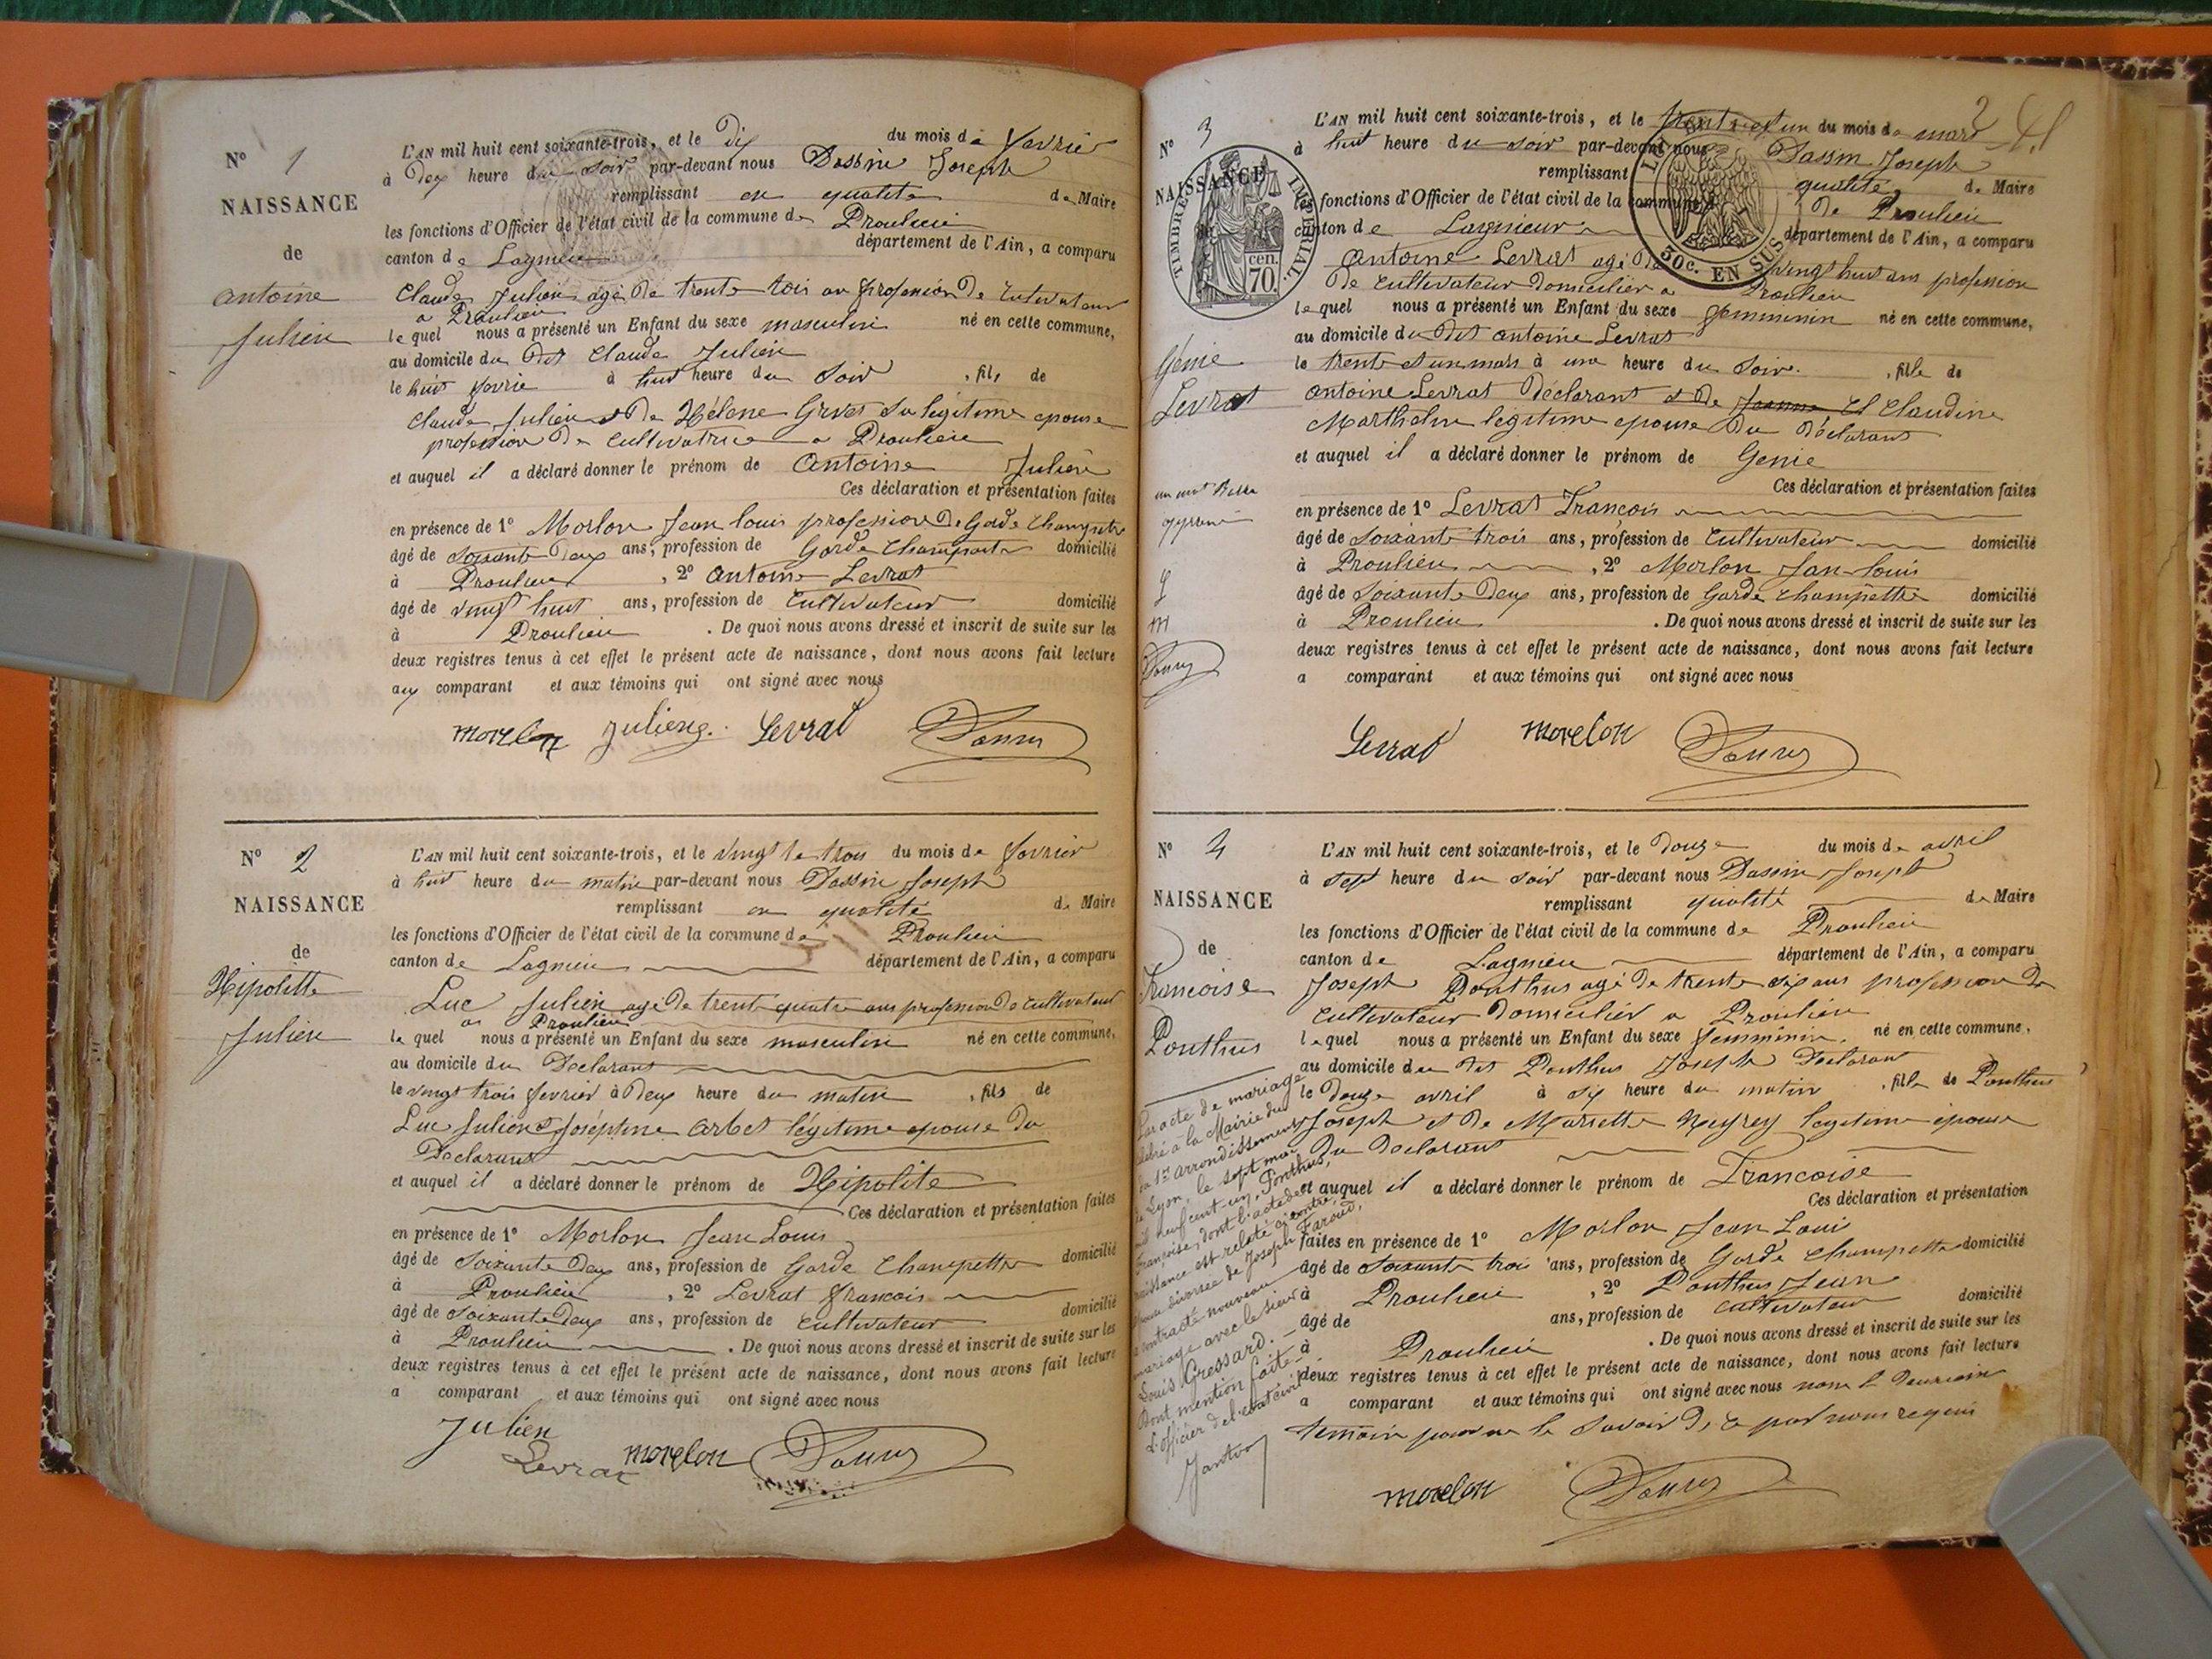 N° 1
NAISSANCE
de
Antoine
Julien
L'AN mil huit cent soixante-trois, et le dix du mois de favrier
à dex heure du soir par-devant nous Dassin Joseph
remplissant en qualite de Maire
les fonctions d'Officier de l'état civil de la commune de Proulieu
canton de Lagnieu département de l'Ain, a comparu
Claude Julien agé De trente tois an profession De Cultivateur
a Proulieu
le quel nous a présenté un Enfant du sexe masculin né en cette commune,
au domicile du dit Claude Julien
le huit favrie à huit heure du Soir , fils de
Claude Julien et De Hélene Grivet Sa légitime epouse
profession De Cultivatrice a Proulieu
et auquel il a déclaré donner le prénom de Antoine Julien
Ces déclaration et présentation faites
en présence de 1° Morlon Jean louis profession De Garde Champetre
âgé de Soixante Deux ans, profession de Garde Champette domicilié
à Proulieu , 2° Antoine Levrat
âgé de vingt huit ans, profession de Cultivateur domicilié
à Proulieu . De quoi nous avons dressé et inscrit de suite sur les
deux registres tenus à cet effet le présent acte de naissance, dont nous avons fait lecture
aux comparant et aux témoins qui ont signé avec nous
morelon Julieng. Levrat
N° 2
NAISSANCE
de
Hipolitte
Julien
L'AN mil huit cent soixante-trois, et le vingt te trois du mois de favrier
à huit heure du matin par-devant nous Dassin Joseph
remplissant en qualité de Maire
les fonctions d'Officier de l'état civil de la commune de Proulieu
canton de Lagnieu département de l'Ain, a comparu
Luc Julien agé De trente quatre ans profession De Cultivateur
a Proulieu
le quel nous a présenté un Enfant du sexe masculin né en cette commune,
au domicile du Declarant
le vingt trois fevrier à Deux heure du matin , fils de
Luc Julien et Joséphine Arbet légitime epouse Du
Declarant
et auquel il a déclaré donner le prénom de Hipolite
Ces déclaration et présentation faites
en présence de 1° Morlon Jean Louis
âgé de Soixante Deux ans, profession de Garde Champette domicilié
à Proulieu , 2° Levrat francois
âgé de Soixante Deux ans, profession de Cultivateur domicilié
à Proulieu . De quoi nous avons dressé et inscrit de suite sur les
deux registres tenus à cet effet le présent acte de naissance, dont nous avons fait lecture
a comparant et aux témoins qui ont signé avec nous
Julien
Levrat morelon
N° 3
NAISSANCE
TIMBRE IMPERIAL
70 cen.
50c. EN SUS
Génie
Levrat
L'AN mil huit cent soixante-trois, et le trente et un du mois de mars
à huit heure du soir par-devant nous Dassin Joseph
remplissant qualité de Maire
les fonctions d'Officier de l'état civil de la commune de Proulieu
canton de Lagnieur département de l'Ain, a comparu
Antoine Levrat agé De vingt huit ans profession
De Cultivateur Domicilier a Proulieu
le quel nous a présenté un Enfant du sexe femminin né en cette commune,
au domicile du Dit Antoine Levrat
le trente et un mars à une heure du Soir. , fille de
Antoine Levrat Déclarant et De Jeanne et Claudine
Marthelin legitime epouse Du Déclarant
et auquel il a déclaré donner le prénom de Genie
Ces déclaration et présentation faites
en présence de 1° Levrat Francois
âgé de Soixante trois ans, profession de Cultivateur domicilié
à Proulieu , 2° Morlon Jan-louis
âgé de Soixante Deux ans, profession de Garde Champètte domicilié
à Proulieu . De quoi nous avons dressé et inscrit de suite sur les
deux registres tenus à cet effet le présent acte de naissance, dont nous avons fait lecture
a comparant et aux témoins qui ont signé avec nous
L
m
Levrat morelon
N° 4
NAISSANCE
de
Francoise
Ponthus
L'AN mil huit cent soixante-trois, et le Douze du mois de avril
à Sept heure du soir par-devant nous Dassin Joseph
remplissant qualité de Maire
les fonctions d'Officier de l'état civil de la commune de Proulieu
canton de Lagnieu département de l'Ain, a comparu
Joseph Ponthus agé De trente six ans profession De
Cultivateur Domicilier a Proulieu
le quel nous a présenté un Enfant du sexe femminin. né en cette commune,
au domicile du Dit Ponthus Joseph Declarant
le Douze avril à six heure du matin , fille de Ponthus
Joseph et De Mariette Neyrey legitime épouse
Du Declarant
et auquel il a déclaré donner le prénom de Francoise
Ces déclaration et présentation
faites en présence de 1° Morlon Jean Louis
âgé de Soixante trois ans, profession de Garde Champette domicilié
à Proulieu , 2° Ponthus Jean
âgé de ans, profession de Cultivateur domicilié
à Proulieu . De quoi nous avons dressé et inscrit de suite sur les
deux registres tenus à cet effet le présent acte de naissance, dont nous avons fait lecture
a comparant et aux témoins qui ont signé avec nous non le Deuxieme
temoin pour ne le Savoir De ce par nous requis
morelon
Par acte de mariage
à la Mairie du
1er arrondissement
de Lyon, le sept mai
mil neuf cent-un, Ponthus,
Françoise, dont l'acte de
naissance est relaté ci-contre,
divorcée de Joseph Faroud,
a contracté nouveau
mariage avec le sieur
Louis Gressard.
Dont mention faite
L'officier de l'état civil